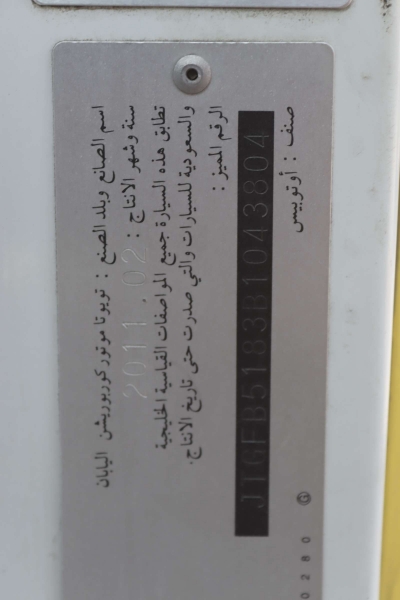 اسم الصانع وبلد الصنع : تويوتا موتور كوربوريشن اليابان
سنة وشهر الانتاج : 2011.02
تطابق هذه السيارة جميع المواصفات القياسية الخليجية
والسعودية للسيارات والتي صدرت حتى تاريخ الانتاج.
الرقم المميز :
JTGFB5183B1043804
صنف : أوتوبيس
0280 G